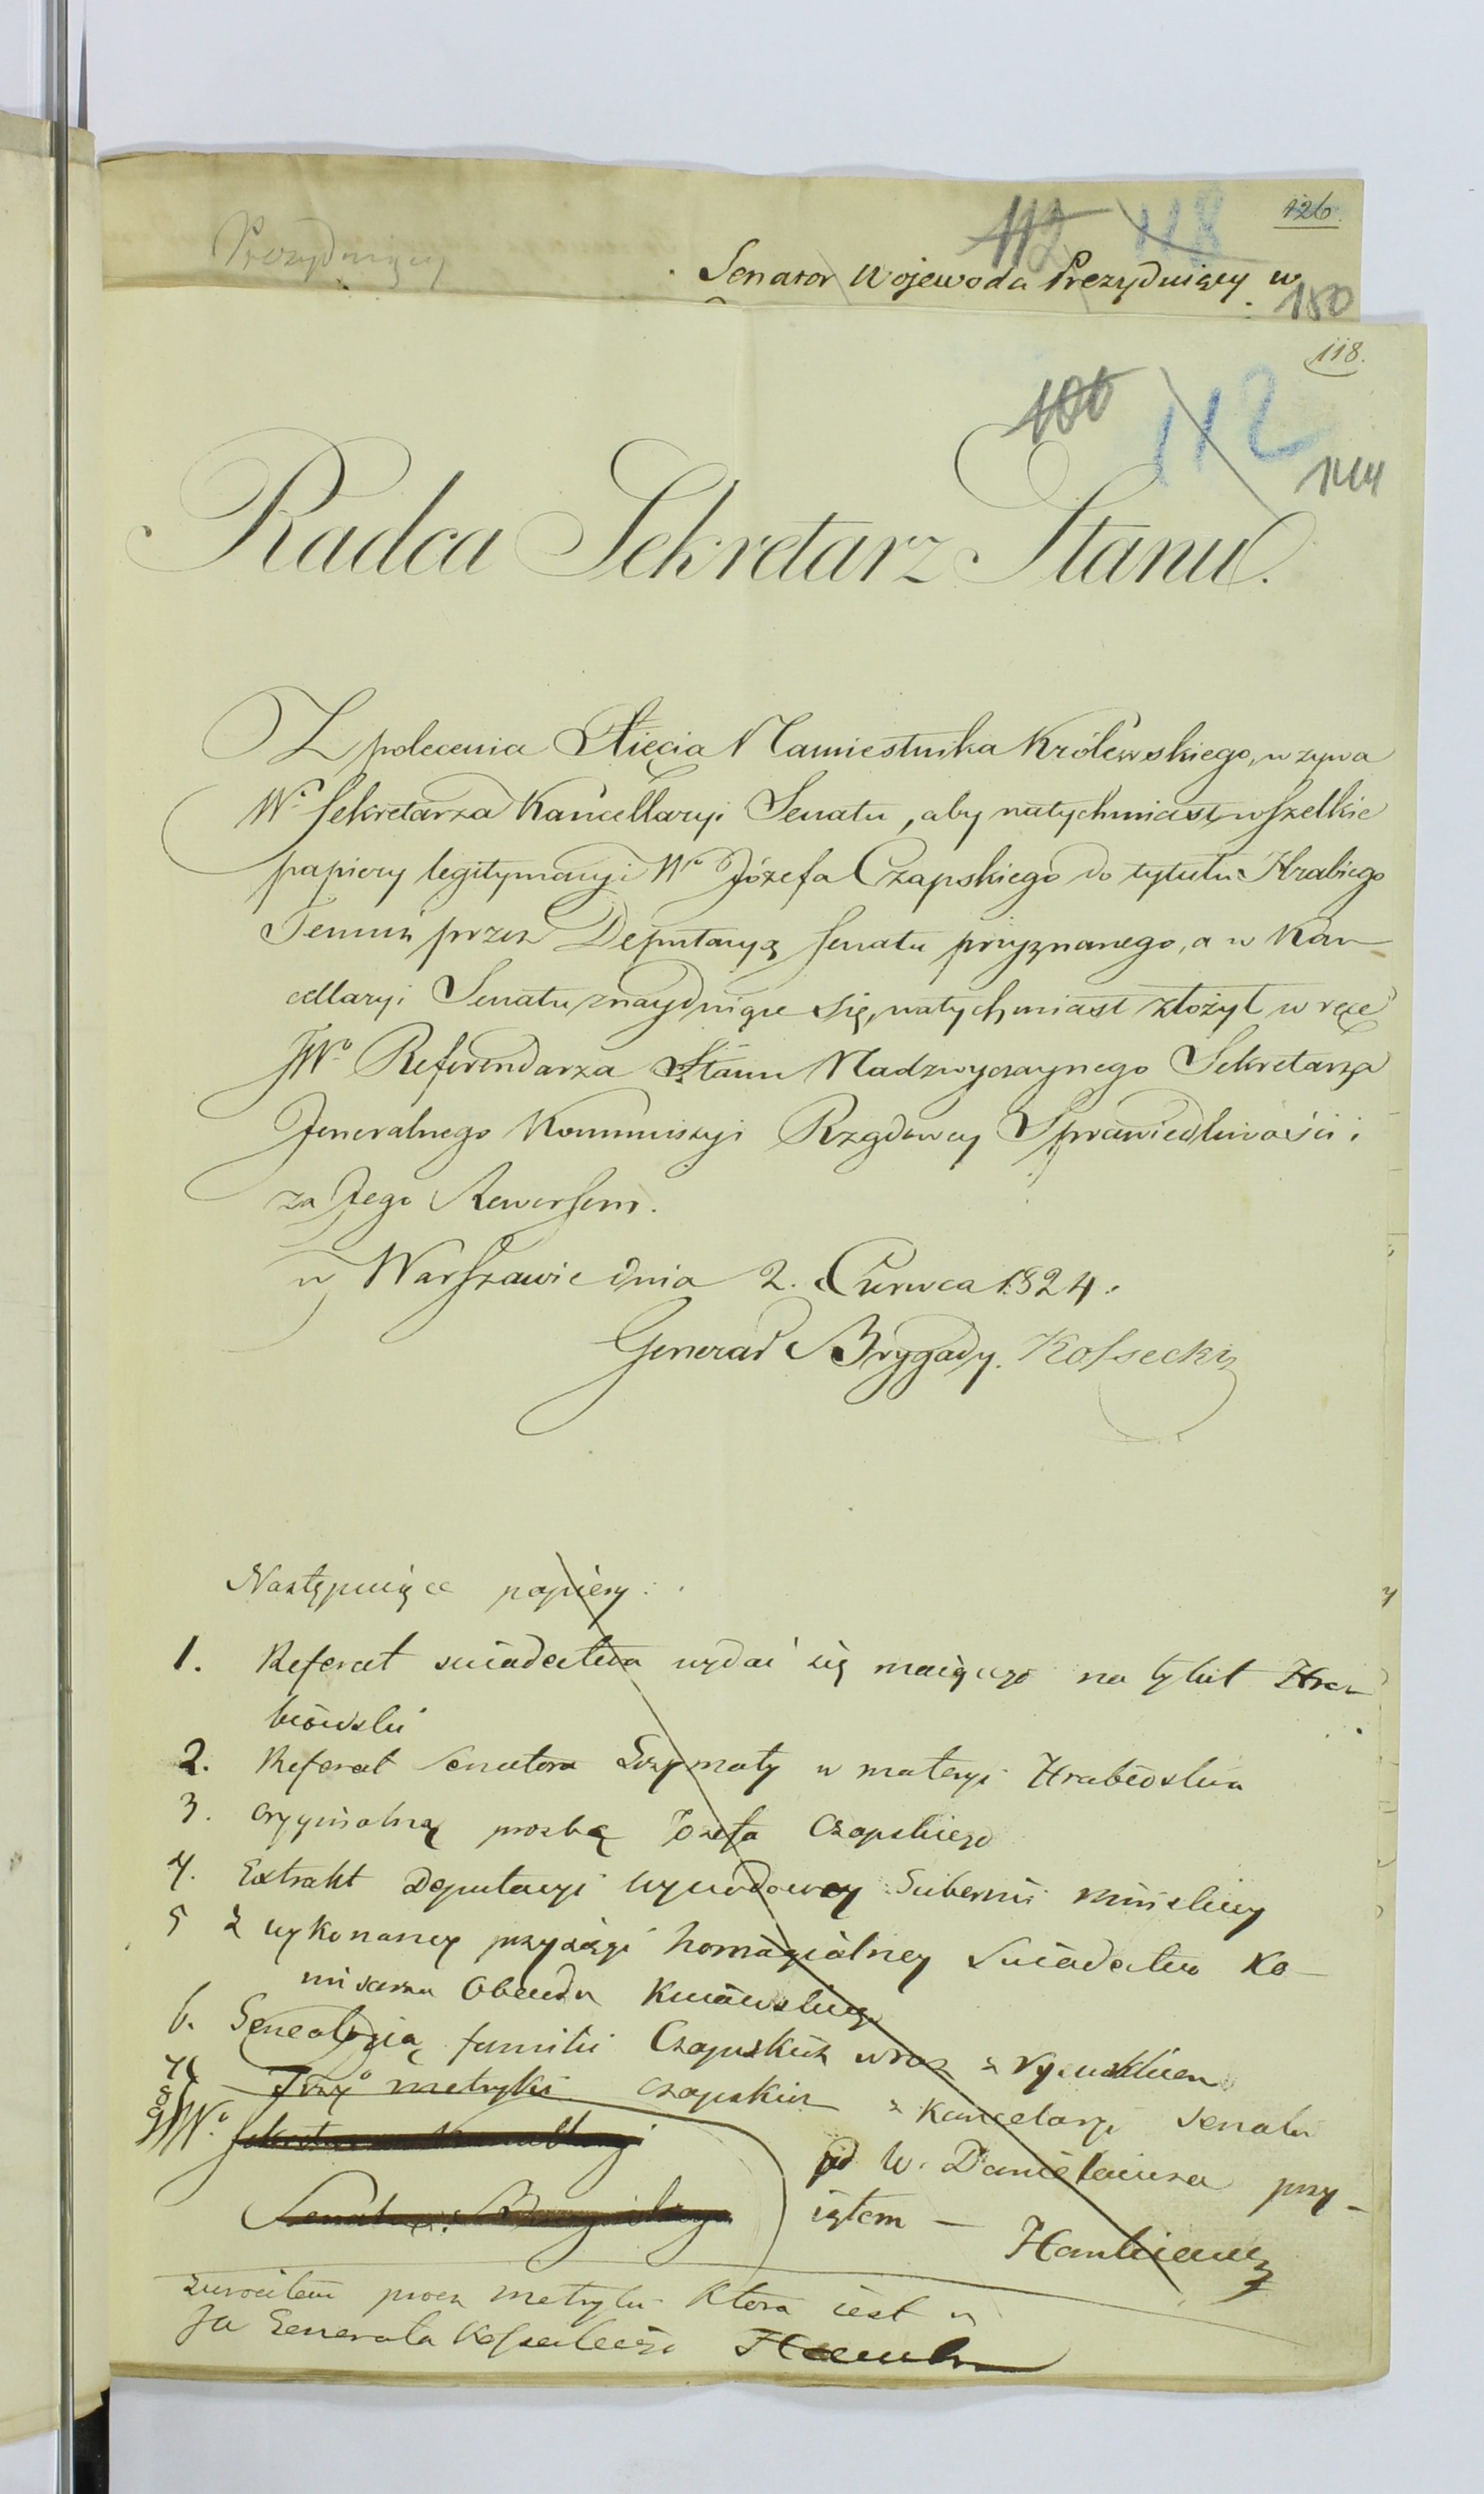 Prezyduiący
112 118 126.
Senator Wojewoda Prezyduiący w
150
118.
106 112
144
Radca Sekretarz Stanu.
Z polecenia Xięcia Namiestnika Królewskiego, wzywa
Wo. Sekretarza Kancellaryi Senatu, aby natychmiast wszelkie
papiery legitymacyi Wo Józefa Czapskiego do tytułu Hrabiego
Temuż przez Deputacyą Senatu przyznanego, a w Kan-
cellaryi Senatu znayduiące się, natychmiast złożył w ręce
JWo. Referendarza Stanu Nadzwyczaynego Sekretarza
Jeneralnego Kommissyi Rządowey Sprawiedliwości i
za Jego Rewersem.
w Warszawie dnia 2. Czerwca 1824.
Generał Brygady. Kossecki
Następuiące papiery.
1. Referat świadectwa wydać się maiącego na tytuł Hra-
biowski
2. Referat Senatora Grzymały w materyi Hrabiostwa
3. oryginalną prosbę Józefa Czapskiego
4. Extrakt Deputacyi wywodowey Gubernii Minskiey
5 z wykonaney przysięgi homagialney świadectwo Ko-
misarza Obwodu Kuiawskiego
6. Genealogią familii Czapskich wraz z
7 Trzy metryki Czapskich z Kancelaryi Senatu
8
9 JWo.
od W. Danielewicza przy-
iąłem — Hankiewicz
zwrociłem procz metryki która iest u
JW Generała Kosseckiego